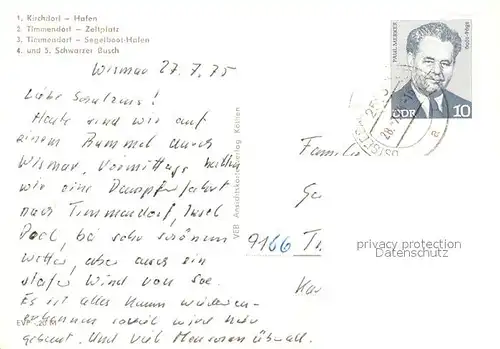 1. Kirchdorf – Hafen
2. Timmendorf – Zeltplatz
3. Timmendorf – Segelboot-Hafen
4. und 5. Schwarzer Busch
Wismar 27.7.75
Liebe
Heute sind wir auf
einem Bummel durch
Wismar, Vormittags hatten
wir eine Dampferfahrt
nach Timmendorf, Insel
Poel, bei sehr schönem
Wetter, aber auch ein
Wind von See.
Es ist alles kaum wieder-
zuerkennen soviel wird hier
gebaut. Und viel Menschen überall.
VEB Ansichtskartenverlag Köthen
PAUL MERKER
DDR 10
OSTSEE
28.7.
a
Familie
9166
privacy protection
Datenschutz